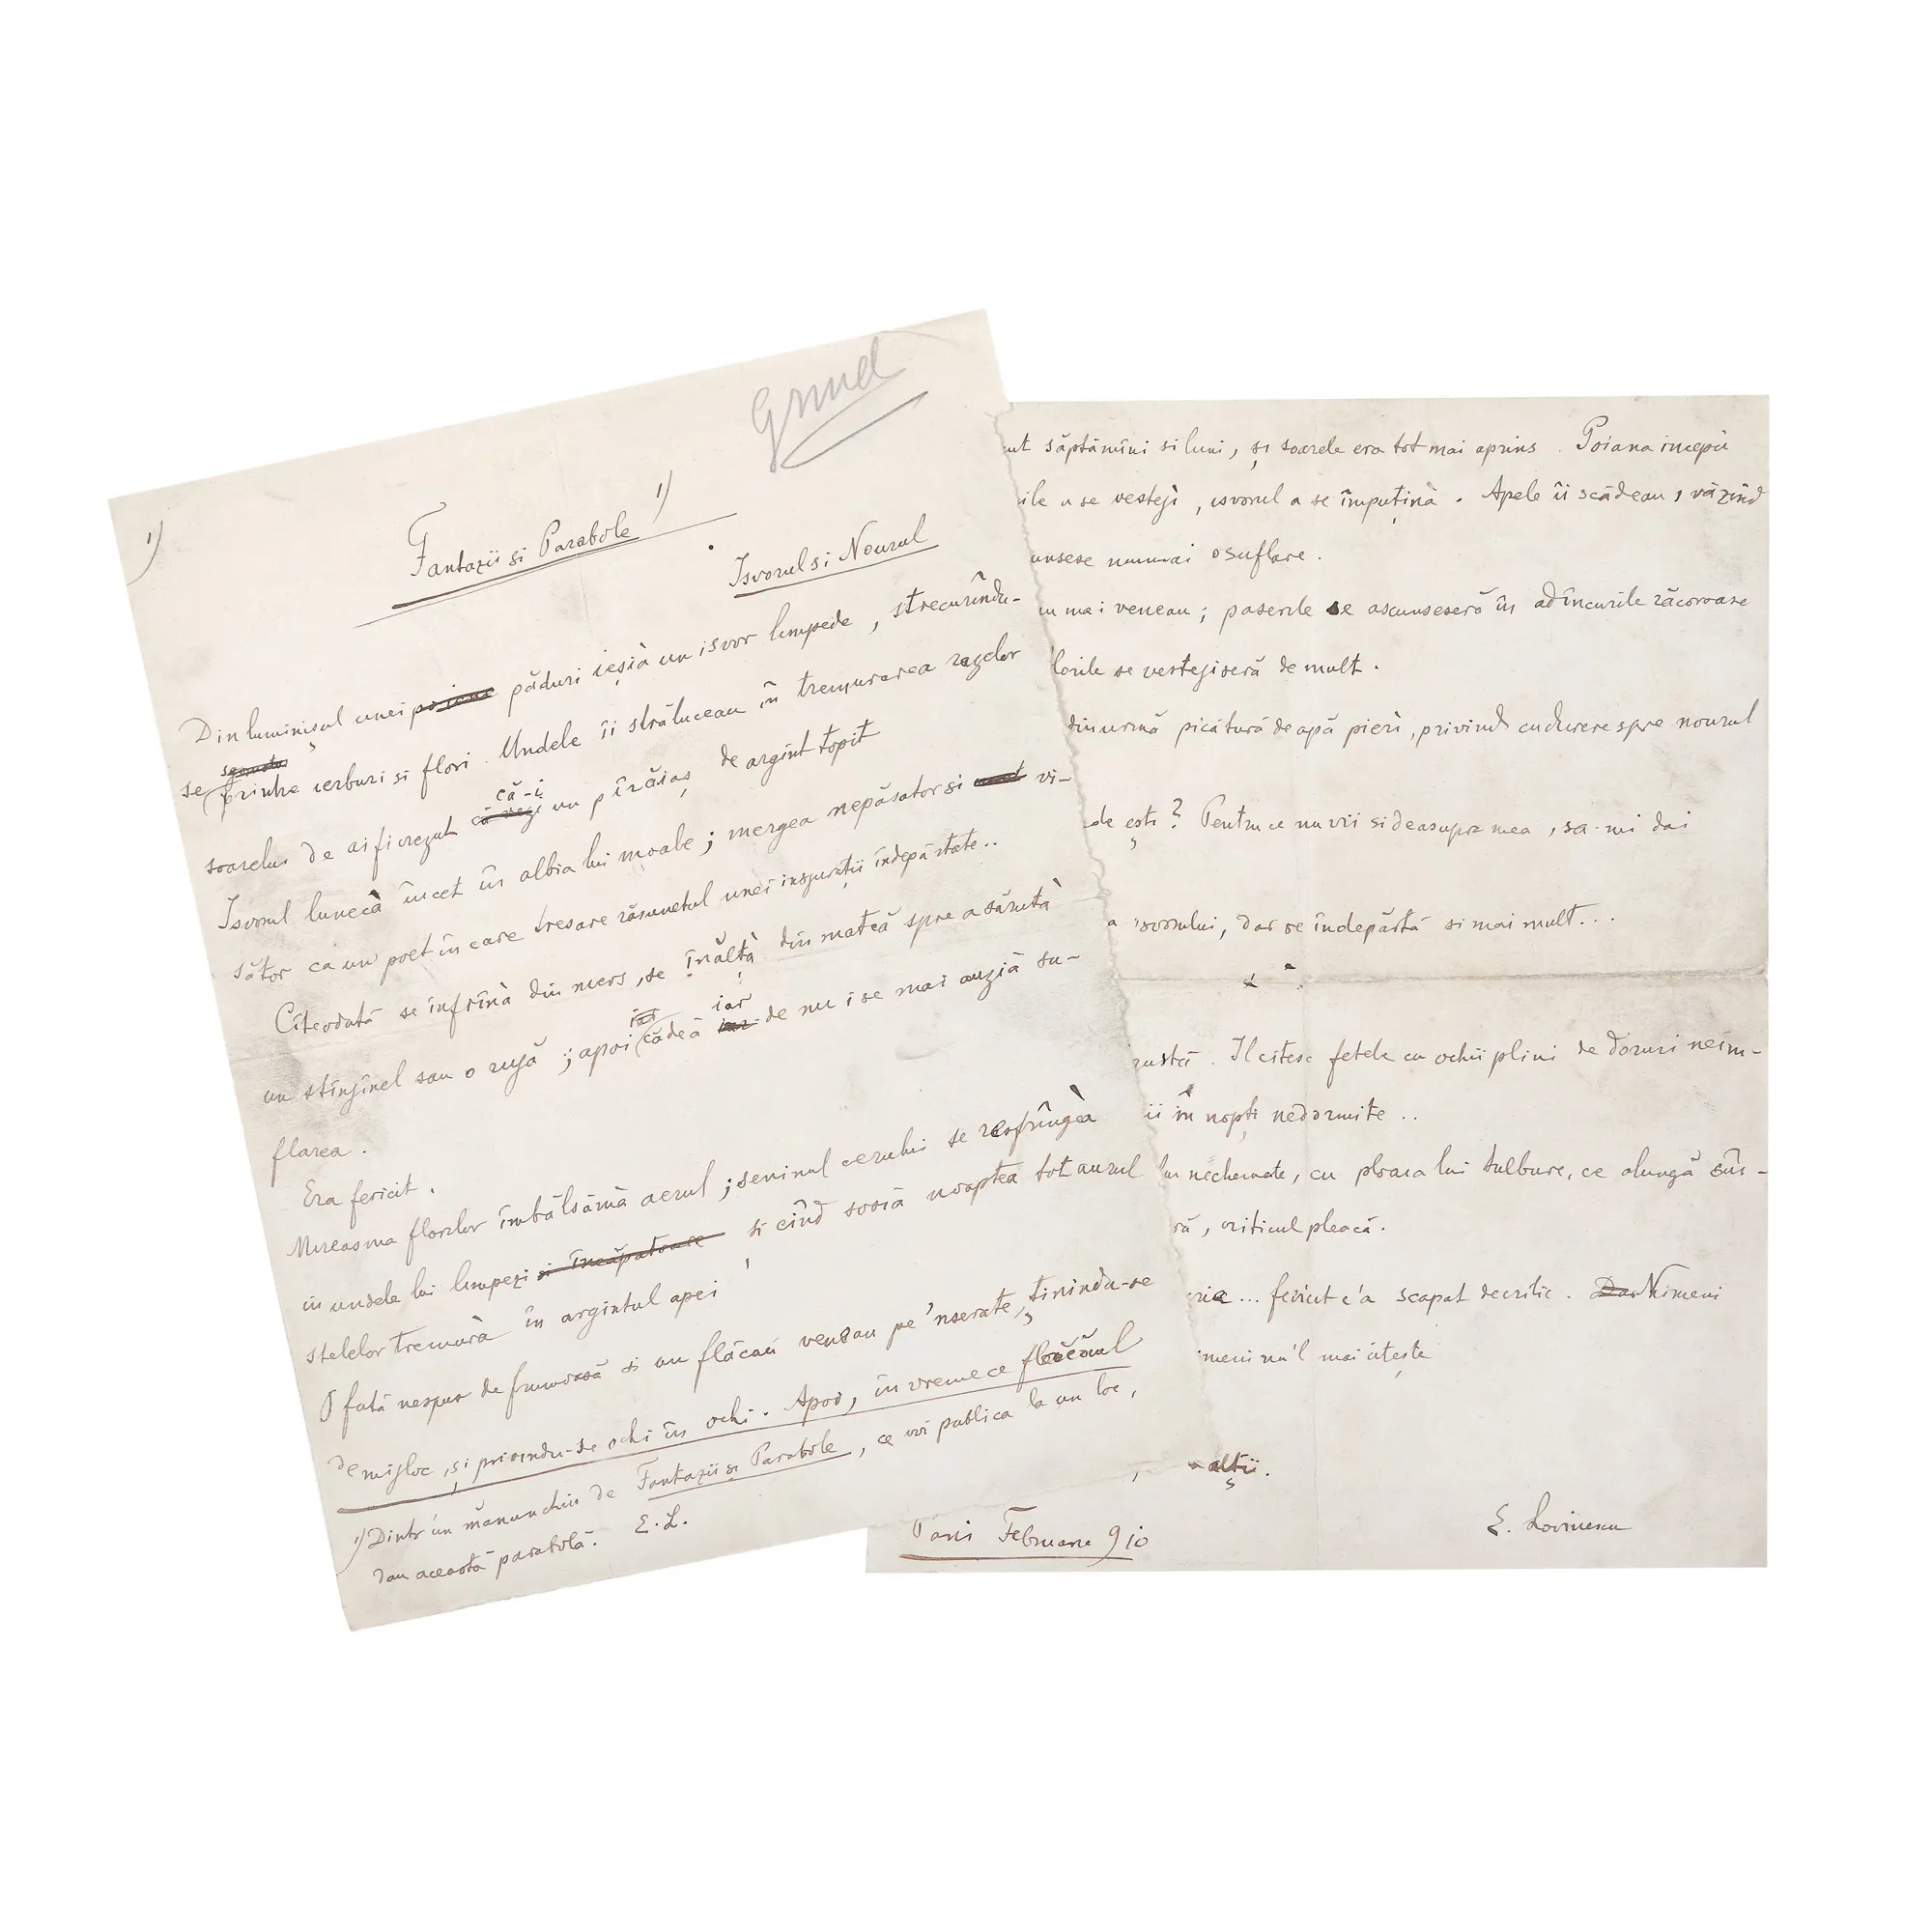 1)
Fantazii si Parabole 1)
Isvorul si Nourul
Din luminişul unei păduri ieşià un isvor limpede, strecurîndu-
se printre ierburi si flori. Undele îi străluceau în tremurarea razelor
soarelui de ai fi crezut că-i un pîrăiaş de argint topit
Isvorul lunecà încet în albia lui moale; mergea nepăsator si vi-
sător ca un poet în care tresare răsunetul unei inspiraţii îndepărtate..
Cîteodată se înfrînà din mers, se înălţà din matcă spre a săruta
un stînjinel sau o rujă; apoi cădeà iar de nu i se mai auzià su-
flarea.
Era fericit.
Mireasma florilor îmbălsămà aerul; seninul cerului se resfrîngeà
în undele lui limpezi si cînd sosià noaptea tot aurul
stelelor tremurà în argintul apei
O fată nespus de frumoasă si un flăcău veneau pe 'nserate, ţinindu-se
de mijloc, şi privindu-se ochi în ochi. Apoi, în vreme ce flăcăul
1) Dintr'un mănunchiu de Fantazii si Parabole, ce voi publica la un loc,
dau această parabolă. E.L.
săptămîni si luni, şi soarele era tot mai aprins. Poiana începù
a se vestejì, isvorul a se împuţinà. Apele îi scădeau, văzînd
numai o suflare.
mai veneau; paserile se ascunseseră în adîncurile răcoroase
se vestejiseră de mult.
din urmă picătură de apă pierì, privind cu durere spre nourul
eşti? Pentru ce nu vii si deasupra mea, sa-mi dai
isvorului, dar se îndepărtă si mai mult...
Il citesc fetele cu ochii plini de doruri neîm-
în nopţi nedormite..
nechemate, cu ploaia lui tulbure, ce alungă
criticul pleacă.
... fericit c'a scapat de critic. Nimeni
nu'l mai citeşte
alţii.
Paris Februarie 910
E. Lovinescu